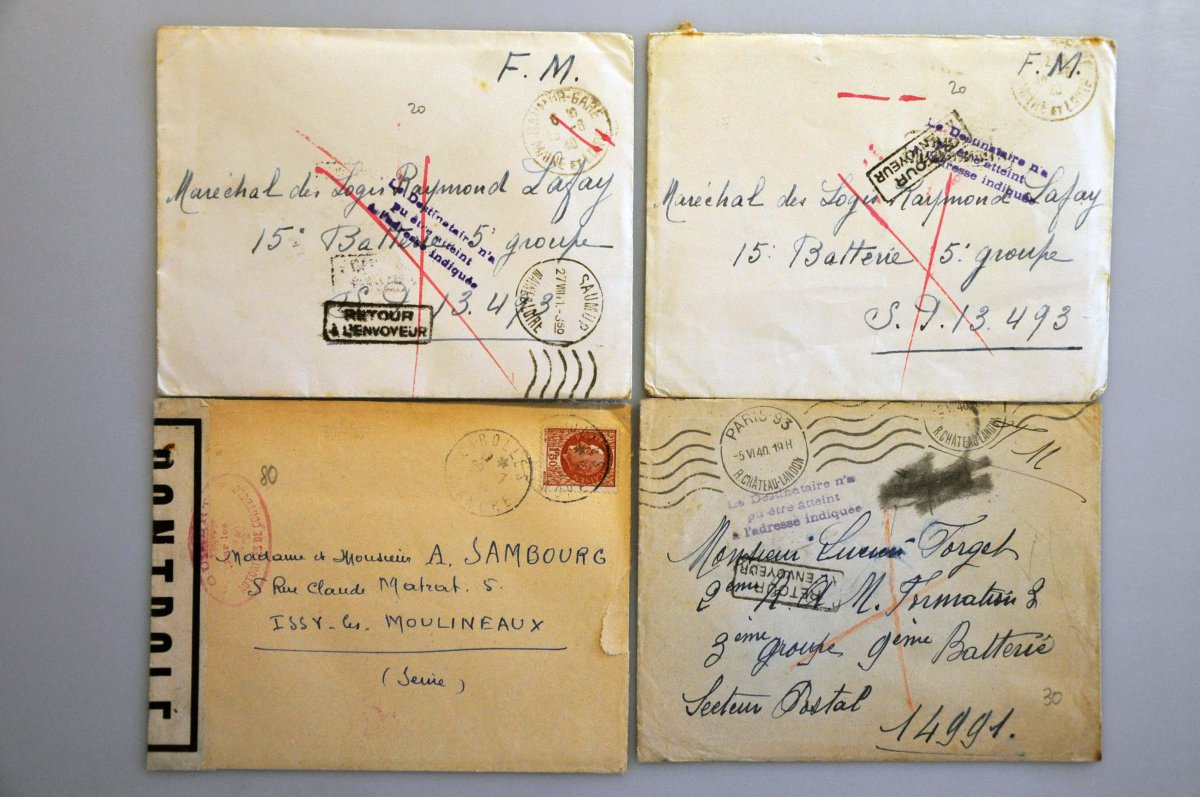 F. M.
20
SAUMUR-GARE
Maréchal des Logis Raymond Lafay
15e Batterie 5e groupe
S. P. 13.493
Le Destinataire n'a
pu être atteint
à l'adresse indiquée
RETOUR
À L'ENVOYEUR
SAUMUR
MAINE & LOIRE
F. M.
20
MAINE ET LOIRE
Le Destinataire n'a
pu être atteint
à l'adresse indiquée
RETOUR
Maréchal des Logis Raymond Lafay
15e Batterie 5e groupe
S. P. 13.493
CONTROLE
80
Madame et Monsieur A. SAMBOURG
5 Rue Claude Matrat. 5.
ISSY-les-MOULINEAUX
(Seine)
PARIS-93
-5 VI 40. 19H
R. CHÂTEAU-LANDON
R. CHÂTEAU-LANDON
Le Destinataire n'a
pu être atteint
à l'adresse indiquée
RETOUR
À L'ENVOYEUR
Monsieur Lucien Forget
2ème R. A M. Formation 3
3ème groupe 9ème Batterie
Secteur Postal
14991.
30